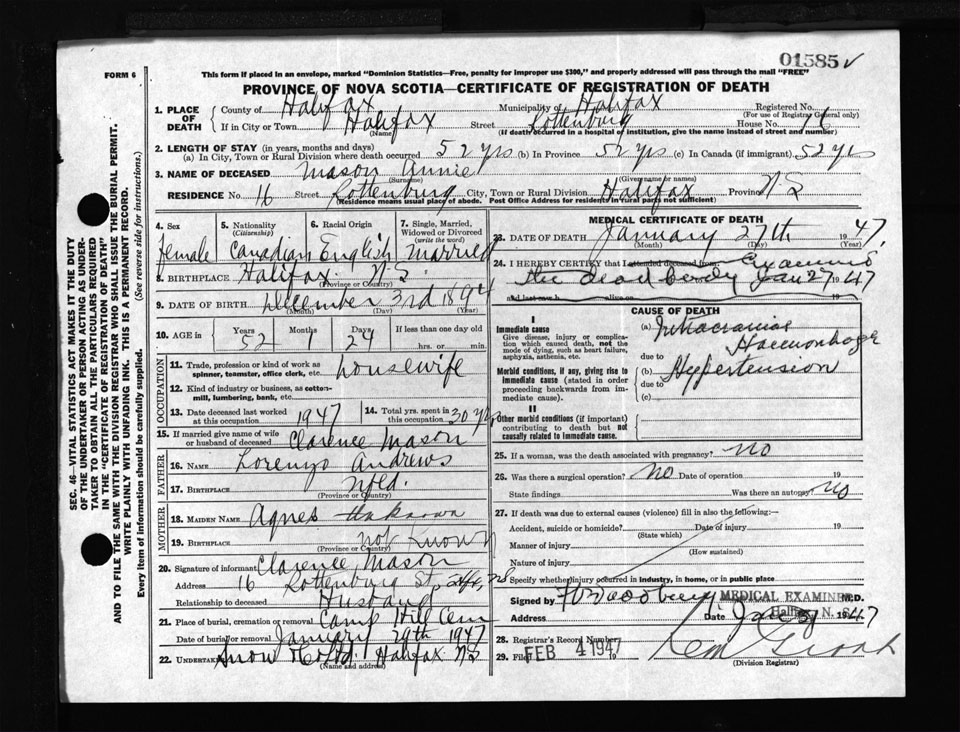 01585✓
FORM 6
This form if placed in an envelope, marked "Dominion Statistics—Free, penalty for improper use $300," and properly addressed will pass through the mail "FREE"
PROVINCE OF NOVA SCOTIA—CERTIFICATE OF REGISTRATION OF DEATH
1. PLACE OF DEATH County of Halifax Municipality of Halifax Registered No.
(For use of Registrar General only)
If in City or Town Halifax Street Rottenburg House No. 16
(Name) (If death occurred in a hospital or institution, give the name instead of street and number)
2. LENGTH OF STAY (in years, months and days)
(a) In City, Town or Rural Division where death occurred 52 yrs (b) In Province 52 yrs (c) In Canada (if immigrant) 52 yrs
3. NAME OF DECEASED Mason Annie
(Surname) (Given name or names)
RESIDENCE No. 16 Street Rottenburg City, Town or Rural Division Halifax Province N.S
(Residence means usual place of abode. Post Office Address for residents in rural parts not sufficient)
4. Sex 5. Nationality (Citizenship) 6. Racial Origin 7. Single, Married, Widowed or Divorced (write the word)
Female Canadian English Married
8. BIRTHPLACE Halifax N.S.
(Province or Country)
9. DATE OF BIRTH December 3rd 1894
(Month) (Day)
10. AGE in Years Months Days If less than one day old
52 1 24 hrs. or min.
OCCUPATION
11. Trade, profession or kind of work as spinner, teamster, office clerk, etc. Housewife
12. Kind of industry or business, as cotton-mill, lumbering, bank, etc.
13. Date deceased last worked at this occupation 1947 14. Total yrs. spent in this occupation 30 yrs
15. If married give name of wife or husband of deceased Clarence Mason
FATHER
16. NAME Lorenzo Andrews
17. BIRTHPLACE Nfld.
(Province or Country)
MOTHER
18. MAIDEN NAME Agnes Unknown
19. BIRTHPLACE not Known
(Province or Country)
20. Signature of informant Clarence Mason
Address 16 Rottenburg St, Hfx, NS
Relationship to deceased Husband
21. Place of burial, cremation or removal Camp Hill Cem
Date of burial or removal January 29th 1947
22. UNDERTAKER Snow & Co Ltd. Halifax N.S
(Name and address)
MEDICAL CERTIFICATE OF DEATH
23. DATE OF DEATH January 27th 1947
(Month) (Day) (Year)
24. I HEREBY CERTIFY that I attended deceased from Examined
the dead body Jan 27 1947
and last saw h alive on
CAUSE OF DEATH
I
Immediate cause
Give disease, injury or complication which caused death, not the mode of dying, such as heart failure, asphyxia, asthenia, etc.
(a) Intracranial Haemorrhage
due to
Morbid conditions, if any, giving rise to immediate cause (stated in order proceeding backwards from immediate cause).
(b) Hypertension
due to
(c)
II
Other morbid conditions (if important) contributing to death but not causally related to immediate cause.
25. If a woman, was the death associated with pregnancy? No
26. Was there a surgical operation? No Date of operation 19
State findings Was there an autopsy? No
27. If death was due to external causes (violence) fill in also the following:—
Accident, suicide or homicide? Date of injury 19
(State which)
Manner of injury
(How sustained)
Nature of injury
Specify whether injury occurred in industry, in home, or in public place
Signed by MEDICAL EXAMINER M.D.
Address Halifax, N. S. Date Jan 31 1947
28. Registrar's Record Number
29. Filed FEB 4 1947 19
(Division Registrar)
SEC. 46—VITAL STATISTICS ACT MAKES IT THE DUTY OF THE UNDERTAKER OR PERSON ACTING AS UNDERTAKER TO OBTAIN ALL THE PARTICULARS REQUIRED IN THE "CERTIFICATE OF REGISTRATION OF DEATH" AND TO FILE THE SAME WITH THE DIVISION REGISTRAR WHO SHALL ISSUE THE BURIAL PERMIT.
WRITE PLAINLY WITH UNFADING INK. THIS IS A PERMANENT RECORD.
Every item of information should be carefully supplied. (See reverse side for instructions.)